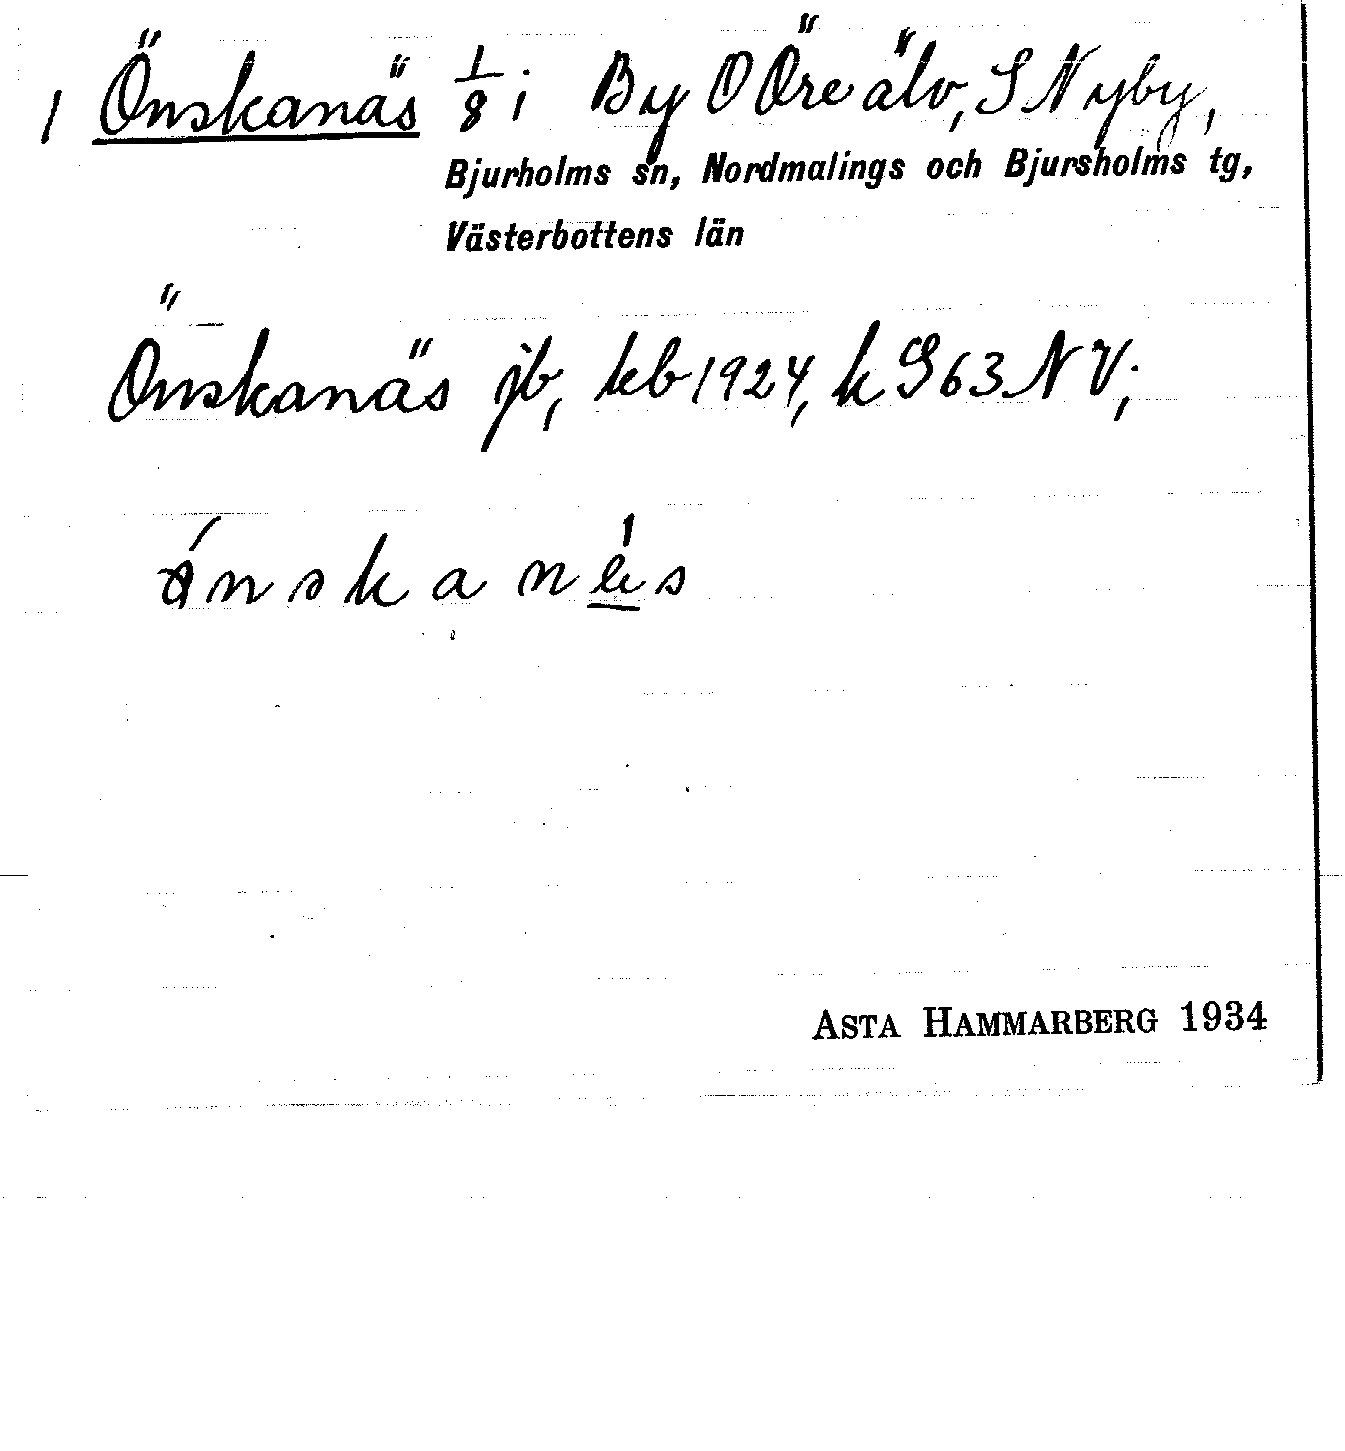 1 Önskanäs 1/8 i By O Öre älv, S Nyby,
Bjurholms sn, Nordmalings och Bjursholms tg,
Västerbottens län
Önskanäs jb, kb 1924, k S 63 N V;
ASTA HAMMARBERG 1934